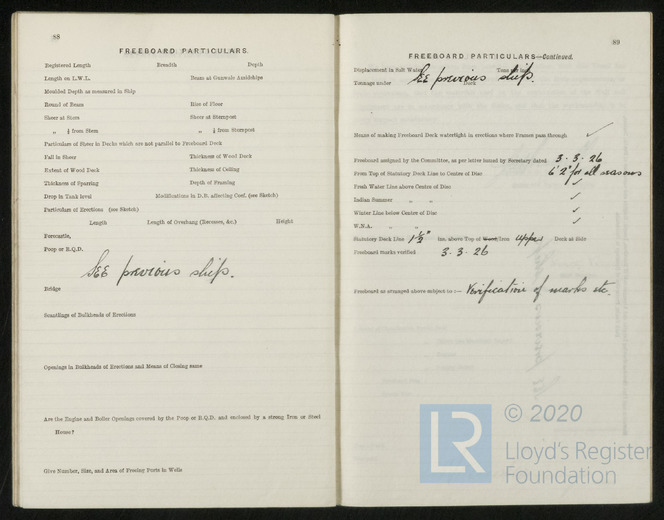 88
FREEBOARD PARTICULARS.
Registered Length Breadth Depth
Length on L.W.L. Beam at Gunwale Amidships
Moulded Depth as measured in Ship
Round of Beam Rise of Floor
Sheer at Stem Sheer at Sternpost
„ ⅛ from Stem „ ⅛ from Sternpost
Particulars of Sheer in Decks which are not parallel to Freeboard Deck
Fall in Sheer Thickness of Wood Deck
Extent of Wood Deck Thickness of Ceiling
Thickness of Sparring Depth of Framing
Drop in Tank level Modifications in D.B. affecting Coef. (see Sketch)
Particulars of Erections (see Sketch)
Length Length of Overhang (Recesses, &c.) Height
Forecastle,
Poop or R.Q.D.
SEE previous ship.
Bridge
Scantlings of Bulkheads of Erections
Openings in Bulkheads of Erections and Means of Closing same
Are the Engine and Boiler Openings covered by the Poop or R.Q.D. and enclosed by a strong Iron or Steel
House?
Give Number, Size, and Area of Freeing Ports in Wells
89
FREEBOARD PARTICULARS—Continued.
Displacement in Salt Water Tons per inch
Tonnage under Deck
SEE previous ship.
Means of making Freeboard Deck watertight in erections where Frames pass through ✓
Freeboard assigned by the Committee, as per letter issued by Secretary dated 3-3-26
From Top of Statutory Deck Line to Centre of Disc 6' 2" for all seasons
Fresh Water Line above Centre of Disc ✓
Indian Summer „ „ ✓
Winter Line below Centre of Disc ✓
W.N.A. „ „ ✓
Statutory Deck Line 1½" ins. above Top of Wood/Iron upper Deck at Side
Freeboard marks verified 3-3-26
Freeboard as arranged above subject to :— Verification of marks etc.
LR
© 2020
Lloyd's Register
Foundation